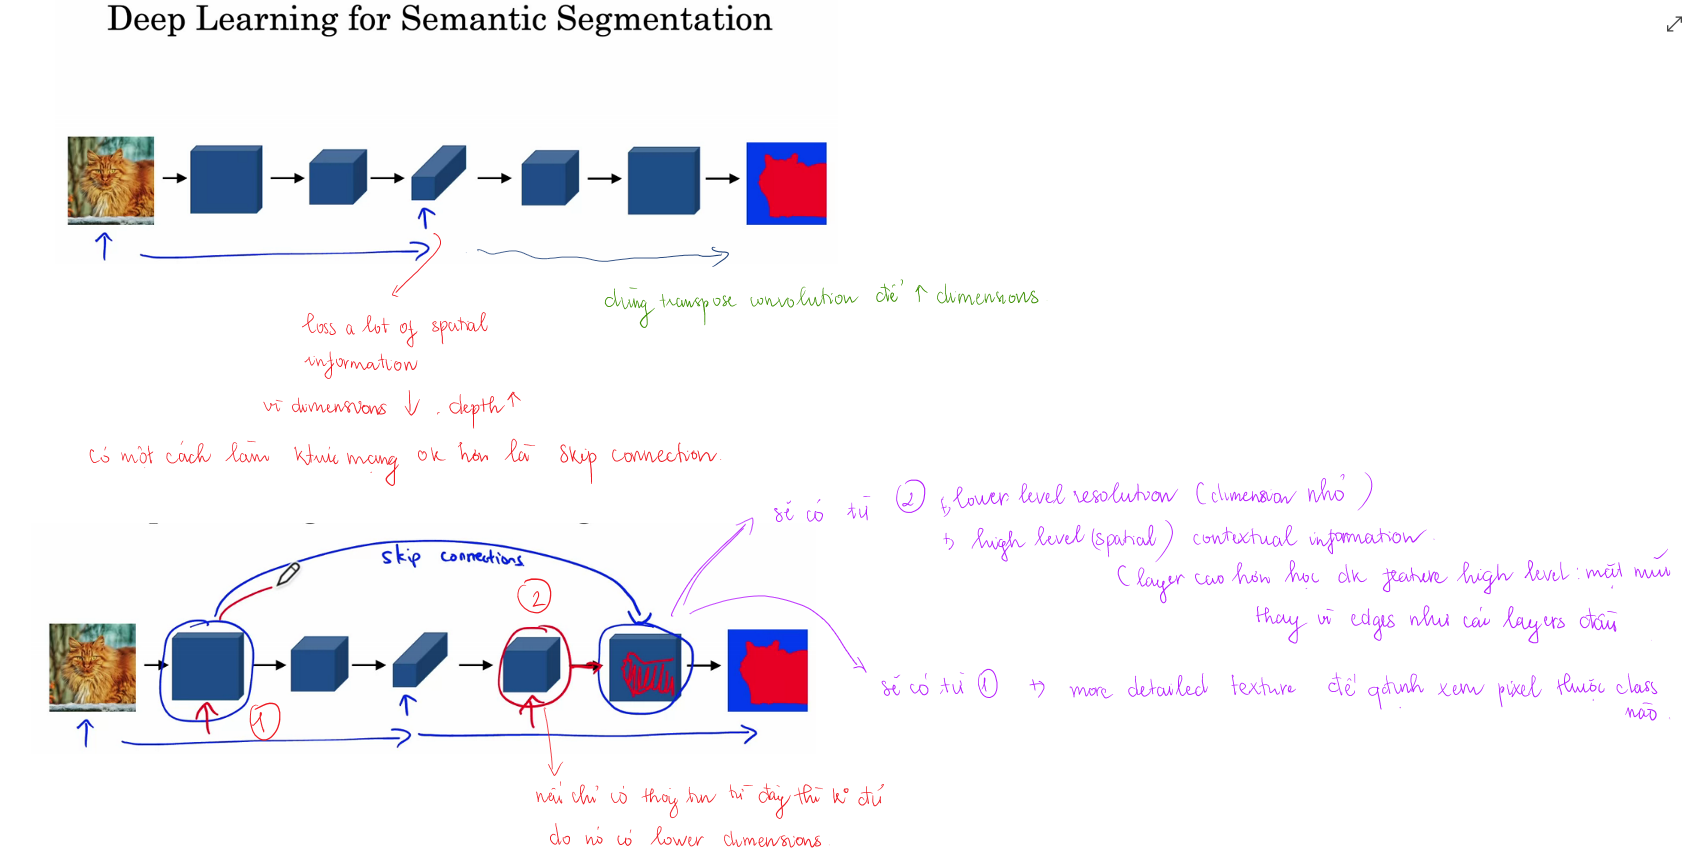 Deep Learning for Semantic Segmentation
dùng transpose convolution để ↑ dimensions
loss a lot of spatial
information
vì dimensions ↓ , depth ↑
có một cách làm kthúc mạng ok hơn là skip connection.
skip connections
sẽ có từ ② ↳ lower level resolution (dimension nhỏ)
↳ high level (spatial) contextual information.
(layer cao hơn học đk feature high level: mắt mũi
thay vì edges như các layers đầu
②
①
sẽ có từ ① ↳ more detailed texture để qđịnh xem pixel thuộc class
nào.
nếu chỉ có thông tin từ đây thì ko đủ
do nó có lower dimensions